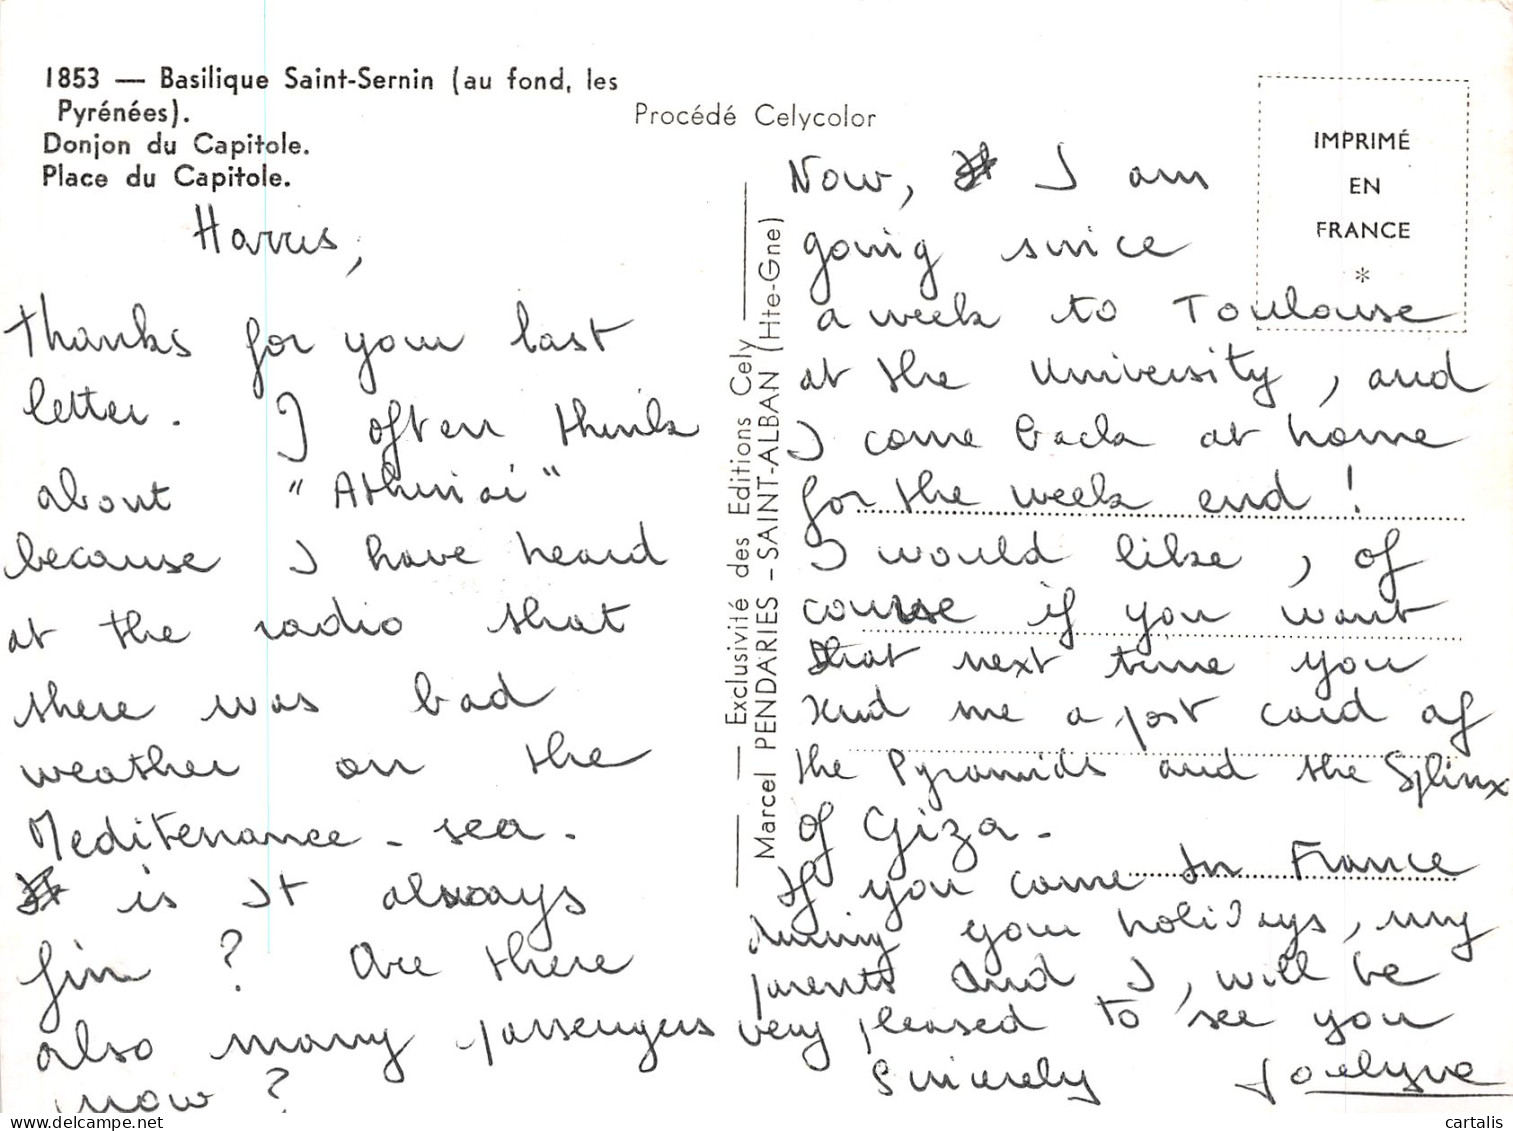 1853 — Basilique Saint-Sernin (au fond, les
Pyrénées).
Donjon du Capitole.
Place du Capitole.
Harris,
thanks for your last
letter. I often think
about "Athinai"
because I have heard
at the radio that
there was bad
weather on the
Mediterrance - sea.
is It always
fin ? Are there
also many passengers
now ?
Procédé Celycolor
Exclusivité des Editions Cely
Marcel PENDARIES - SAINT-ALBAN (Hte-Gne)
IMPRIMÉ
EN
FRANCE
*
Now, I am
going since
a week to Toulouse
at the University, and
I come back at home
for the week end !
I would like, of
course if you want
that next time you
send me a post card of
the Pyramids and the Sphinx
of Giza -
If you come in France
during your holidays, my
parents and I, will be
very pleased to see you
Sincerely Joelyne
cartalis.com